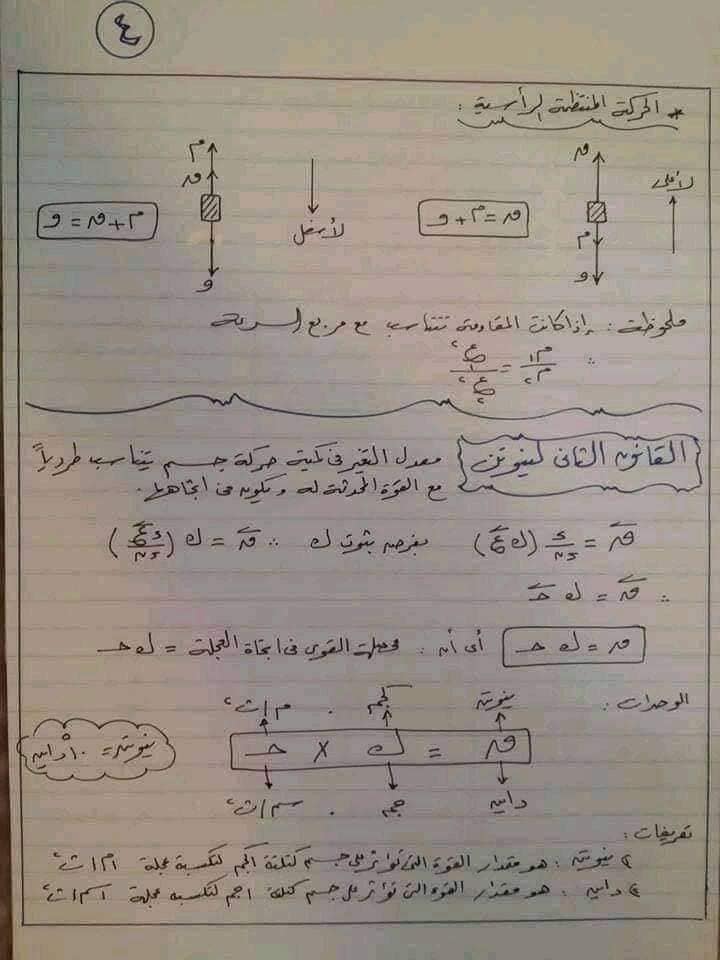 ٤
* الحركة المنتظمة الرأسية :
م
ور
و
لأسفل
م + ور = و
ور
م
و
لأعلى
ور = م + و
ملحوظة : إذا كانت المقاومة تتناسب مع مربع السرعة
∴ م١/م٢ = ع١²/ع٢²
القانون الثاني لنيوتن
معدل التغير في كمية حركة جسم يتناسب طردياً
مع القوة المحدثة له ويكون في اتجاهها .
ور = ء/ءن (ك ع) بفرض ثبوت ك ∴ ور = ك (ءع/ءن)
∴ ور = ك حـ
ور = ك حـ أي أن : محصلة القوى في اتجاة العجلة = ك حـ
الوحدات :
نيوتن كجم . م/ث²
ور = ك × حـ
داين جم . سم/ث²
نيوتن = ١٠⁵ داين
تعريفات :
نيوتن : هو مقدار القوة التي تؤثر على جسم كتلته ١كجم لتكسبه عجلة ١م/ث²
داين : هو مقدار القوة التي تؤثر على جسم كتلته ١جم لتكسبه عجلة ١سم/ث²